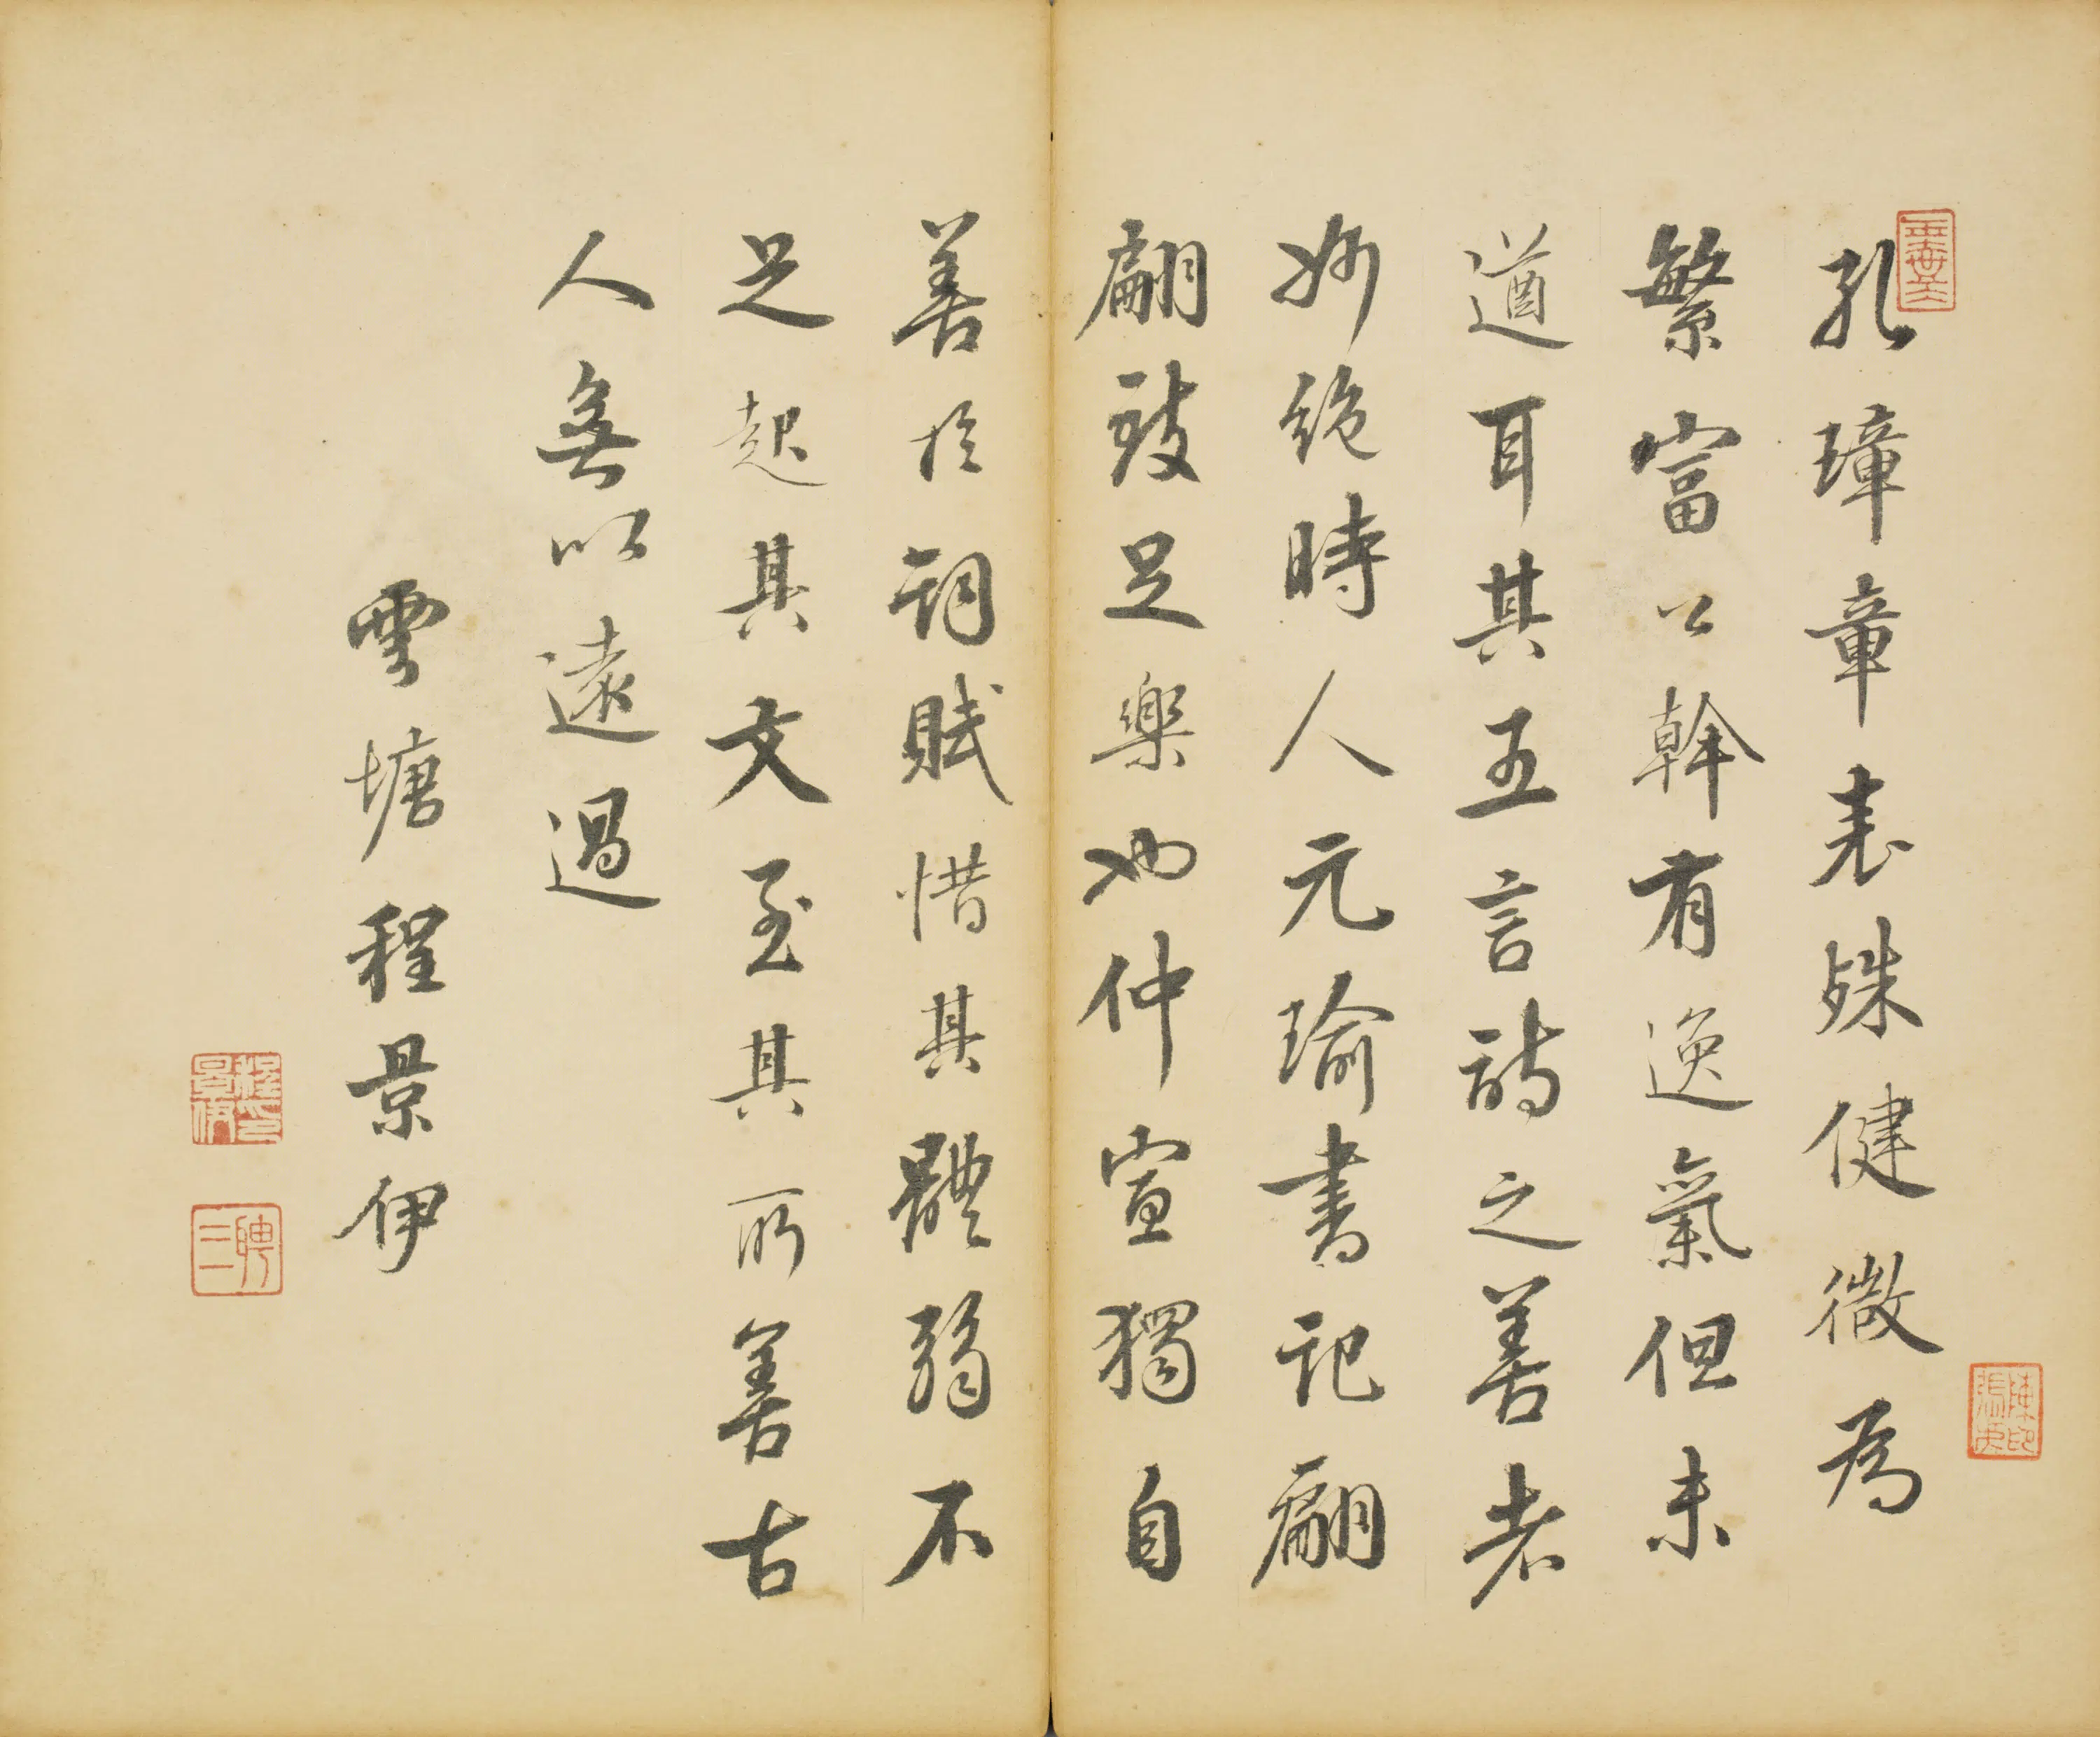 孔璋章表殊健微為
繁富公幹有逸氣但未
遒耳其五言詩之善者
妙絕時人元瑜書記翩
翩致足樂也仲宣獨自
善於詞賦惜其體弱不
足起其文至其所善古
人無以遠過
雲塘程景伊
程景伊印
聘三